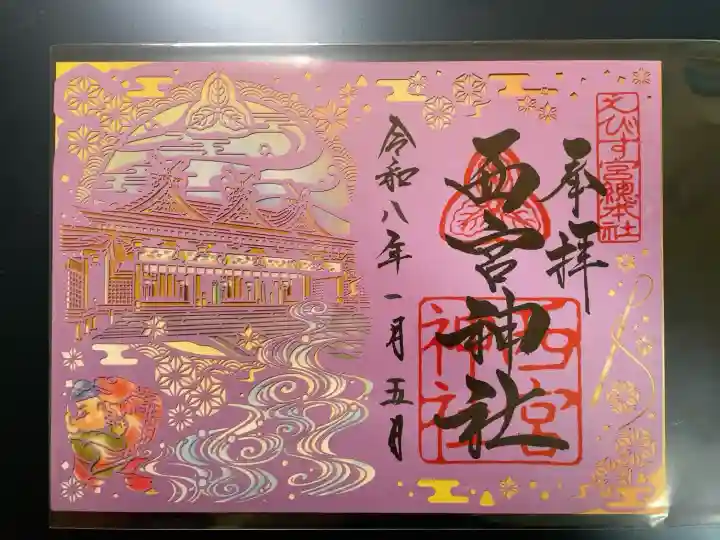 えびす宮総本社
奉拝
西宮神社
西宮
神社
令和八年一月五日